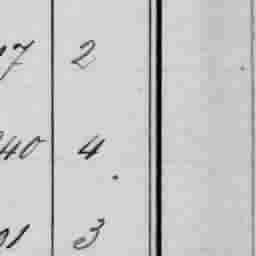 17 2
240 4
01 3